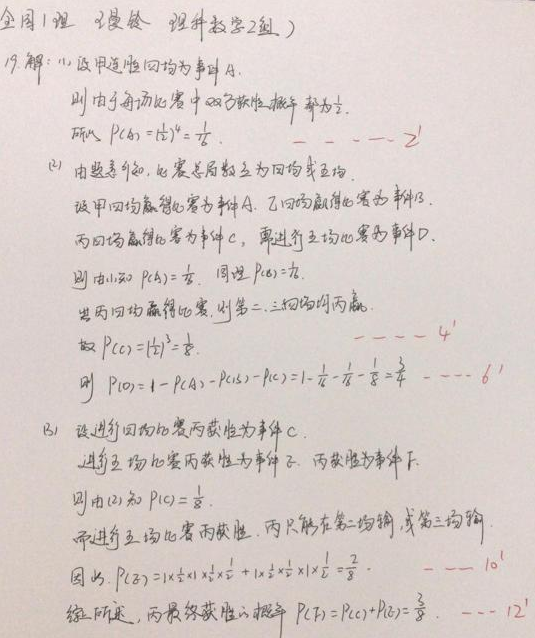 全国1理 理科数学2组)
19.解:(1)设甲连胜四场为事件A.
则由于每场比赛中双方获胜概率都为1/2.
所以 P(A)=(1/2)^4=1/16. - - - - - 2'
(2) 由题意可知,比赛总局数应为四场或五场.
设甲四场赢得比赛为事件A. 乙四场赢得比赛为事件B.
丙四场赢得比赛为事件C, 需进行五场比赛为事件D.
则由(1)知 P(A)=1/16. 同理P(B)=1/16.
当丙四场赢得比赛,则第二、三、四场均丙赢.
故 P(C)=(1/2)^3=1/8. - - - - 4'
则 P(D)=1-P(A)-P(B)-P(C)=1-1/16-1/16-1/8=3/4 - - - - 6'
(3) 设进行四场比赛丙获胜为事件C.
进行五场比赛丙获胜为事件E. 丙获胜为事件F.
则由(2)知 P(C)=1/8.
而进行五场比赛丙获胜,丙只能在第二场输,或第三场输
因此. P(E)=1×1/2×1×1/2×1/2+1×1/2×1/2×1×1/2=2/8. - - - 10'
综上所述,丙最终获胜的概率 P(F)=P(C)+P(E)=3/8. - - - 12'